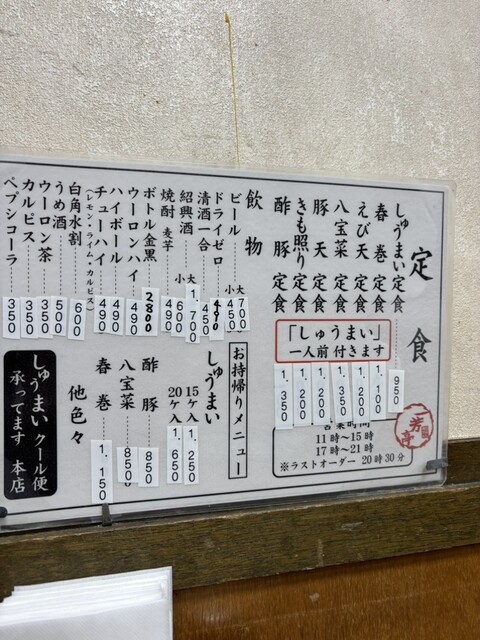 定食
しゅうまい定食 950
春巻定食 1.100
えび天定食 1.200
八宝菜定食 1.350
豚天定食 1.200
きも照り定食 1.200
酢豚定食 1.350
「しゅうまい」
一人前 付きます
営業時間
11時〜15時
17時〜21時
※ラストオーダー 20時30分
一芳亭
飲物
ビール 大 700 小 450
ドライゼロ
清酒一合 450
紹興酒 大 1.700 小 600
焼酎 麦 芋 490
ボトル金黒 2800
ウーロンハイ 490
ハイボール 490
チューハイ 490
(レモン・ライム・カルピス)
白角水割 600
うめ酒 500
ウーロン茶 350
カルピス 350
ペプシコーラ 350
お持帰りメニュー
しゅうまい
15ケ入 1.250
20ケ入 1.650
酢豚 850
八宝菜 850
春巻 1.150
他色々
しゅうまいクール便
承ってます 本店